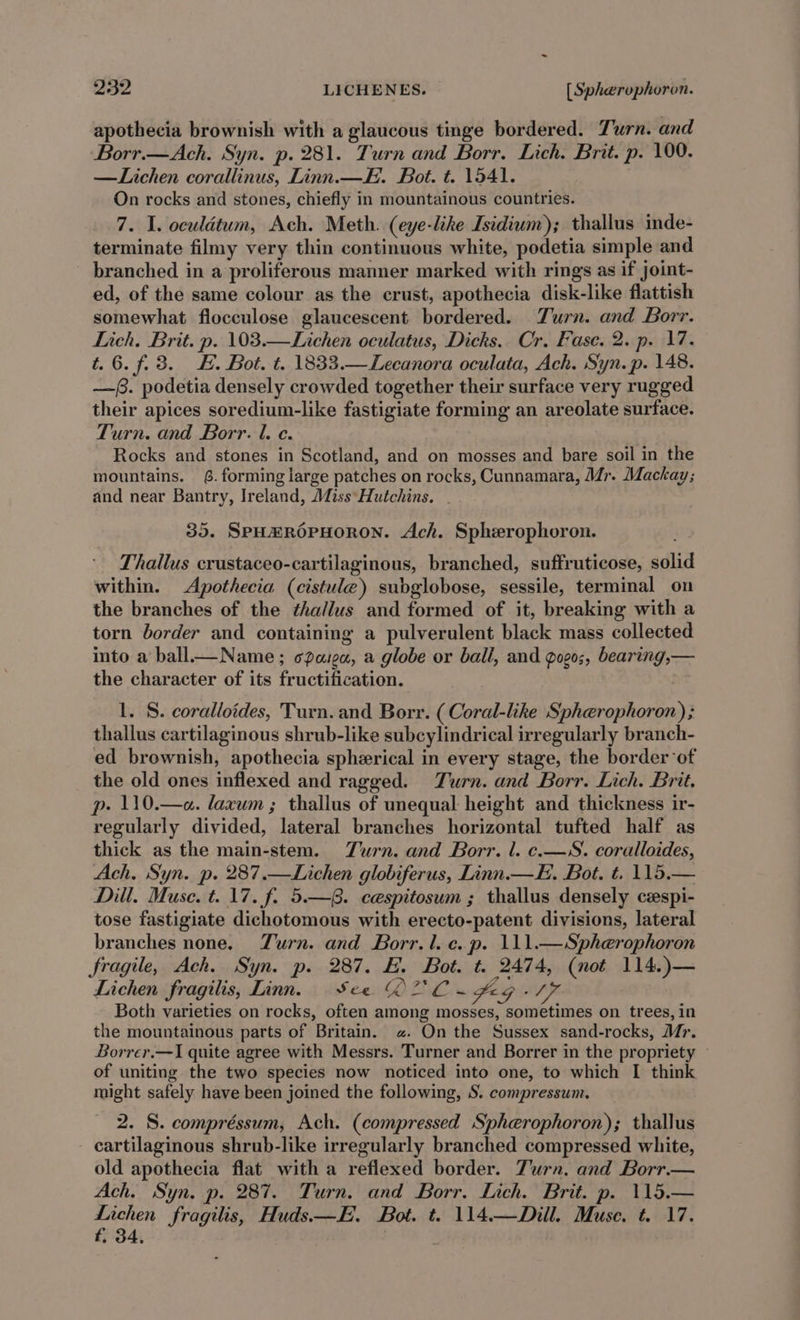 232 LICHENES. [Sphærophoron.
apothecia brownish with a glaucous tinge bordered. Turn. and
Borr.—Ach. Syn. p. 281. Turn and Borr. Lich. Brit. p. 100.
—Lichen corallinus, Linn.—E. Bot. t. 1541.
On rocks and stones, chiefly in mountainous countries.
7. I. oculátum, Ach. Meth. (eye-like Isidium); thallus inde-
terminate filmy very thin continuous white, podetia simple and
branched in a proliferous manner marked with rings as if joint-
ed, of the same colour as the crust, apothecia disk-like flattish
somewhat flocculose glaucescent bordered. Turn. and Borr.
Lich. Brit. p. 103.—Lichen oculatus, Dicks. Cr. Fasc. 2. p. 17.
t. 6. f. 3. E. Bot. t. 1833.—Lecanora oculata, Ach. Syn. p. 148.
—β. podetia densely crowded together their surface very rugged
their apices soredium-like fastigiate forming an areolate surface.
Turn. and Borr. l. c.
Rocks and stones in Scotland, and on mosses and bare soil in the
mountains. β. forming large patches on rocks, Cunnamara, Mr. Mackay;
and near Bantry, Ireland, Miss Hutchins.
35. SPHÆRÓPHORON. Ach. Sphærophoron.
Thallus crustaceo-cartilaginous, branched, suffruticose, solid
within. Apothecia (cistulæ) subglobose, sessile, terminal on
the branches of the thallus and formed of it, breaking with a
torn border and containing a pulverulent black mass collected
into a ball.—Name; σφαιρα, a globe or ball, and φορος, bearing,—
the character of its fructification.
1. S. coralloídes, Turn. and Borr. (Coral-like Sphærophoron);
thallus cartilaginous shrub-like subcylindrical irregularly branch-
ed brownish, apothecia sphærical in every stage, the border of
the old ones inflexed and ragged. Turn. and Borr. Lich. Brit.
p. 110.—α. laxum; thallus of unequal height and thickness ir-
regularly divided, lateral branches horizontal tufted half as
thick as the main-stem. Turn. and Borr. l. c.—S. coralloides,
Ach. Syn. p. 287.—Lichen globiferus, Linn.—E. Bot. t. 115.—
Dill. Musc. t. 17. f. 5.—β. cæspitosum; thallus densely cæspi-
tose fastigiate dichotomous with erecto-patent divisions, lateral
branches none. Turn. and Borr. l. c. p. 111.—Sphærophoron
fragile, Ach. Syn. p. 287. E. Bot. t. 2474, (not 114.)—
Lichen fragilis, Linn. See
Both varieties on rocks, often among mosses, sometimes on trees, in
the mountainous parts of Britain. α. On the Sussex sand-rocks, Mr.
Borrer.—I quite agree with Messrs. Turner and Borrer in the propriety
of uniting the two species now noticed into one, to which I think
might safely have been joined the following, S. compressum.
2. S. compréssum, Ach. (compressed Sphærophoron); thallus
cartilaginous shrub-like irregularly branched compressed white,
old apothecia flat with a reflexed border. Turn. and Borr.—
Ach. Syn. p. 287. Turn. and Borr. Lich. Brit. p. 115.—
Lichen fragilis, Huds.—E. Bot. t. 114.—Dill. Musc. t. 17.
f. 34.